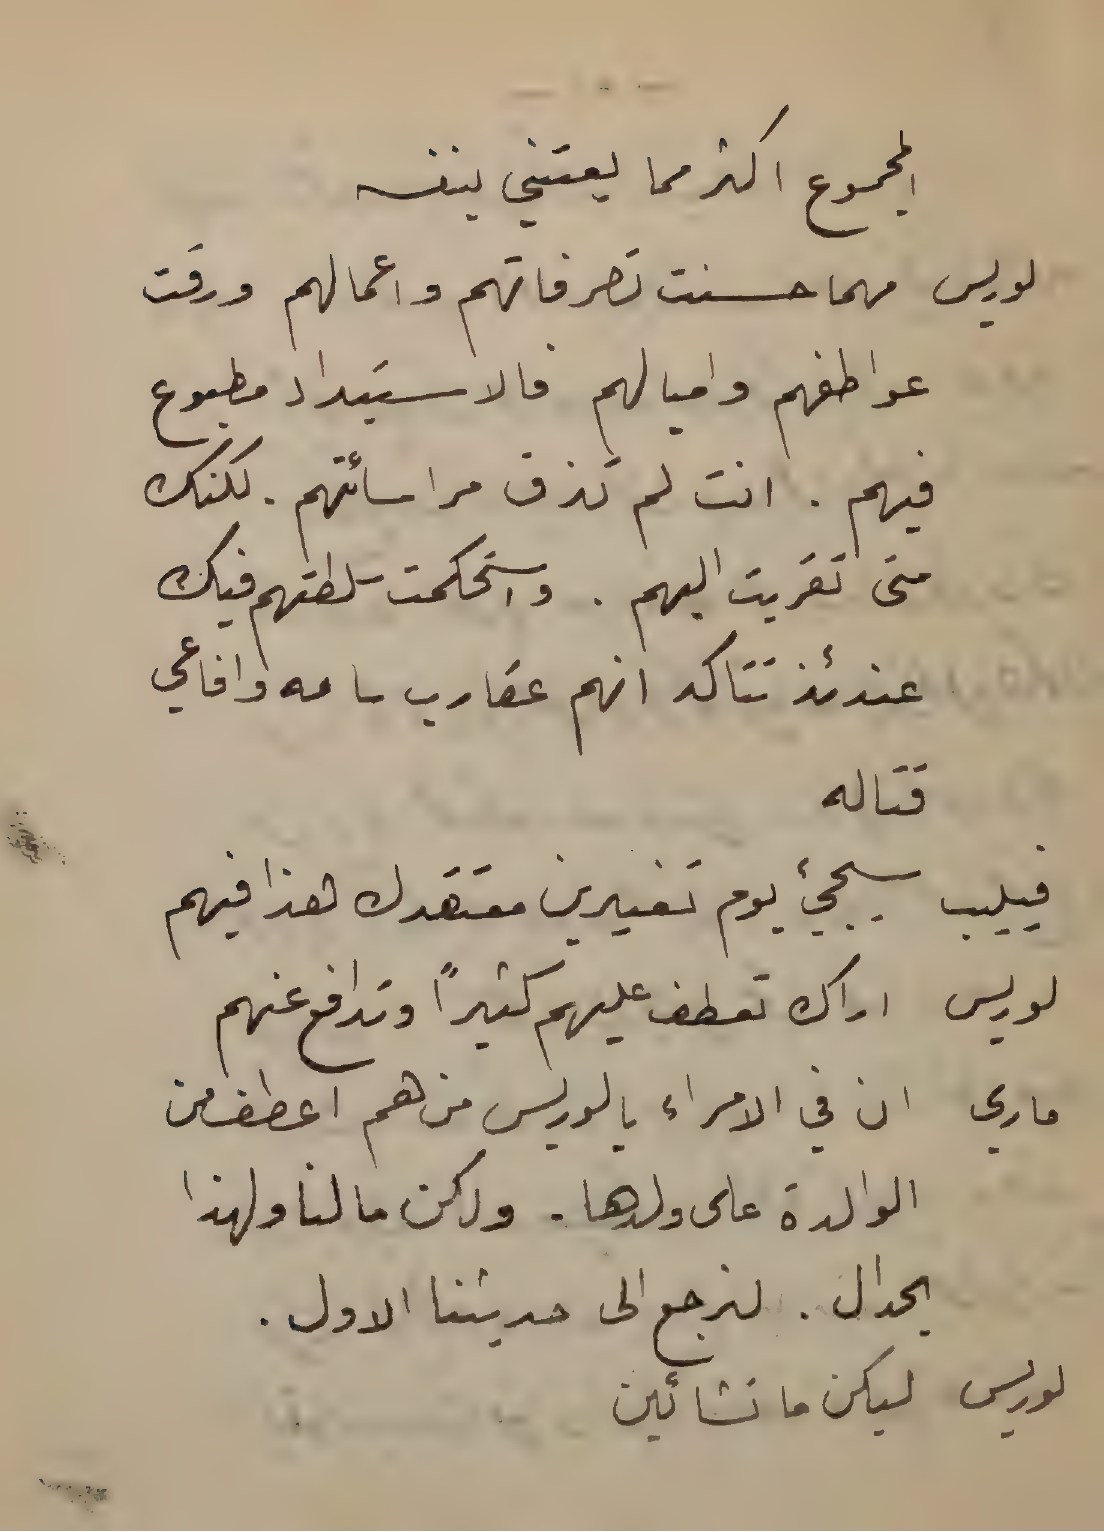 — ١٥ —
المجموع اكثر مما يعتني بنفسه
لوريس مهما حسنت تصرفاتهم واعمالهم ورقت
عواطفهم واميالهم فالاستبداد مطبوع
فيهم . انت لم تذق مراسائتهم . لكنك
متى تقربت اليهم . واستحكمت سلطتهم فيك
عندئذ تتاكد انهم عقارب سامه وافاعي
قتاله
فيليب سيجئ يوم تغيرين معتقدك هذا فيهم
لوريس اراك تعطف عليهم كثيراً وتدافع عنهم
ماري ان في الامراء يالوريس من هم اعطف من
الوالدة على ولدها . ولاكن مالنا ولهذا
الجدال . لنرجع الى حديثنا الاول .
لوريس ليكن ما تشائين